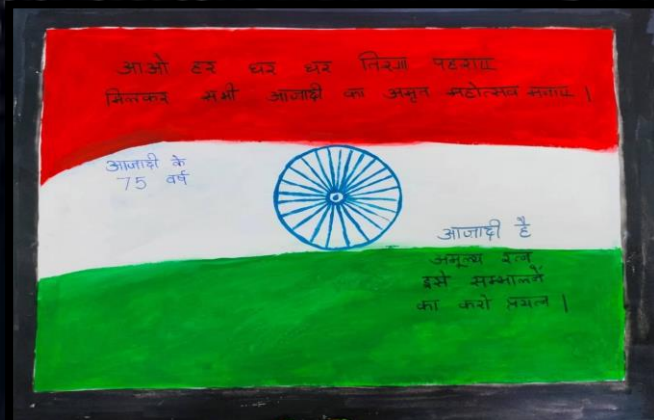 आओ हर घर घर तिरंगा फहराए
मिलकर सभी आजादी का अमृत महोत्सव मनाए ।
आजादी के
75 वर्ष
आजादी है
अमूल्य रत्न
इसे सम्भालनें
का करो प्रयत्न ।